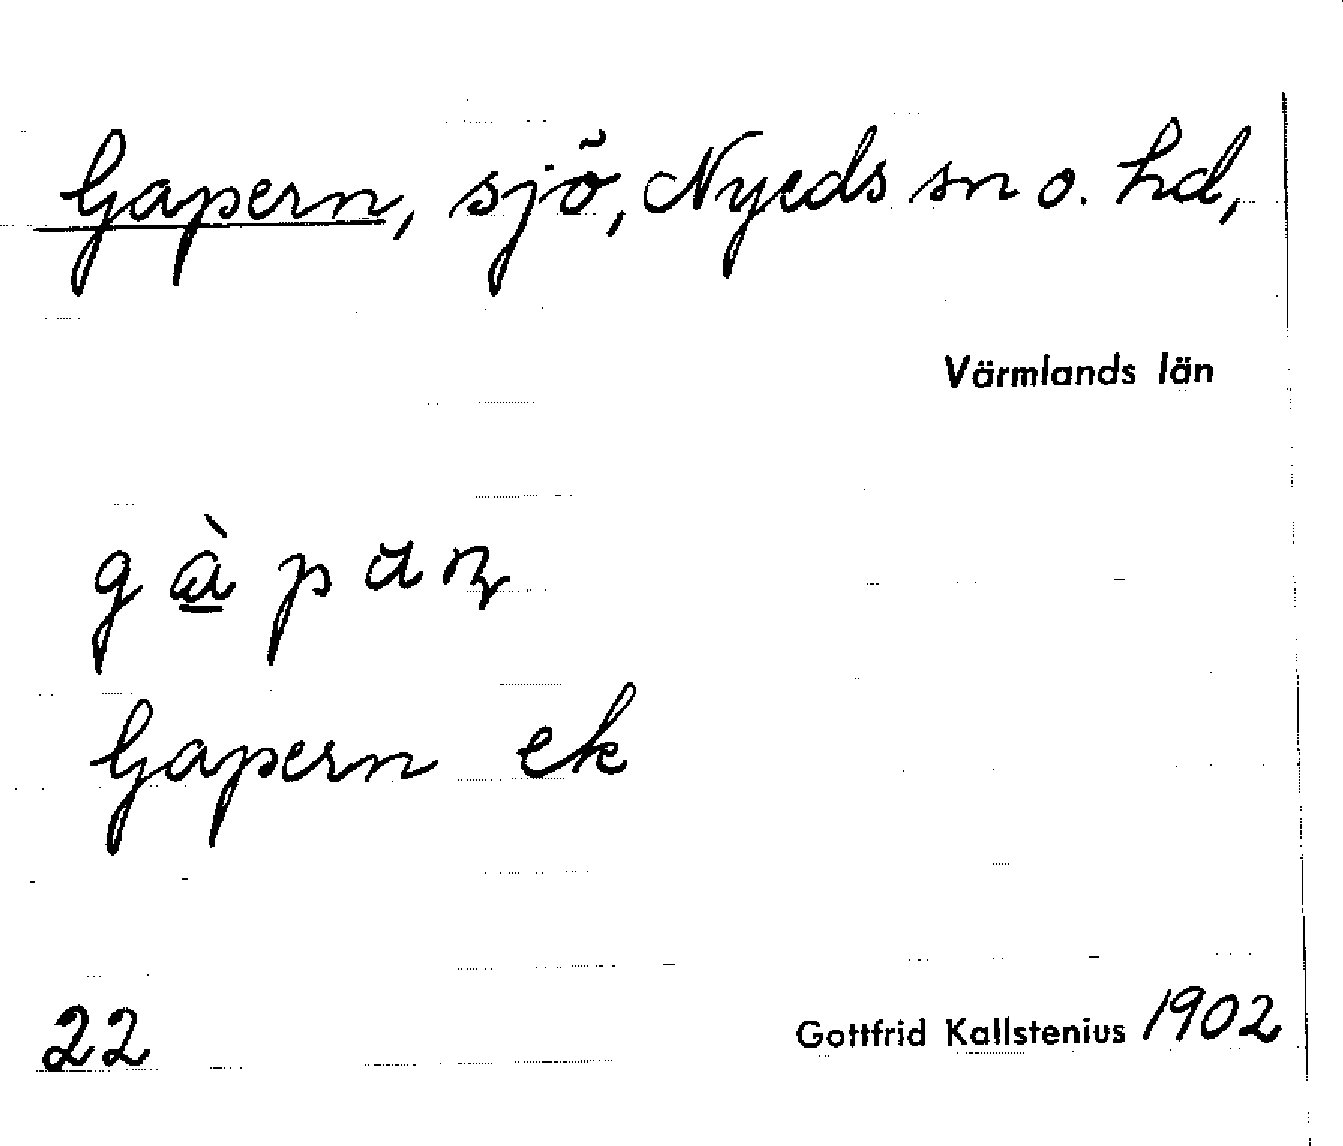 Gapern, sjö, Nyeds sn o. hd,
Värmlands län
gàpaɳ
Gapern ek
22
Gottfrid Kallstenius 1902